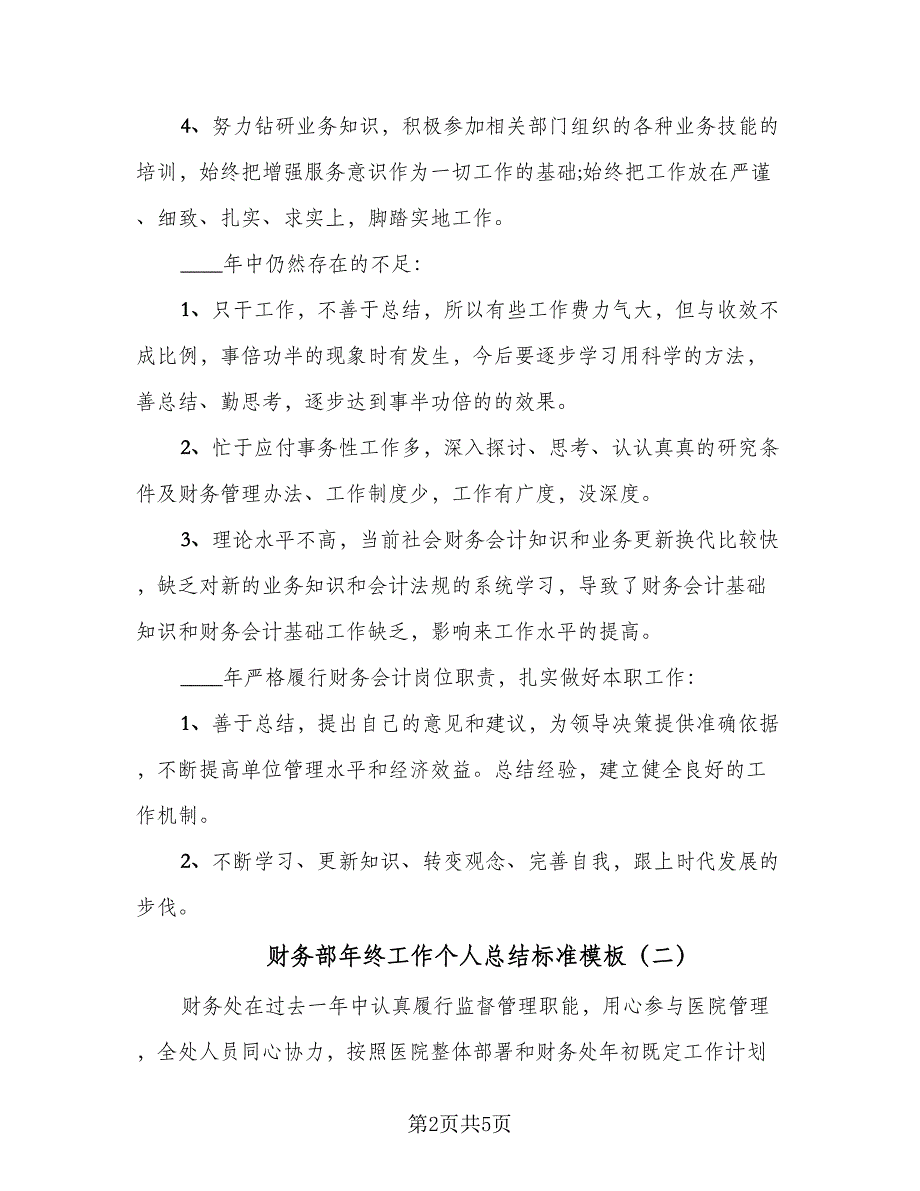 4、努力钻研业务知识，积极参加相关部门组织的各种业务技能的
培训，始终把增强服务意识作为一切工作的基础;始终把工作放在严谨
、细致、扎实、求实上，脚踏实地工作。
____年中仍然存在的不足：
1、只干工作，不善于总结，所以有些工作费力气大，但与收效不
成比例，事倍功半的现象时有发生，今后要逐步学习用科学的方法，
善总结、勤思考，逐步达到事半功倍的的效果。
2、忙于应付事务性工作多，深入探讨、思考、认认真真的研究条
件及财务管理办法、工作制度少，工作有广度，没深度。
3、理论水平不高，当前社会财务会计知识和业务更新换代比较快
，缺乏对新的业务知识和会计法规的系统学习，导致了财务会计基础
知识和财务会计基础工作缺乏，影响来工作水平的提高。
____年严格履行财务会计岗位职责，扎实做好本职工作：
1、善于总结，提出自己的意见和建议，为领导决策提供准确依据
，不断提高单位管理水平和经济效益。总结经验，建立健全良好的工
作机制。
2、不断学习、更新知识、转变观念、完善自我，跟上时代发展的
步伐。
财务部年终工作个人总结标准模板（二）
财务处在过去一年中认真履行监督管理职能，用心参与医院管理
，全处人员同心协力，按照医院整体部署和财务处年初既定工作计划
第2页共5页